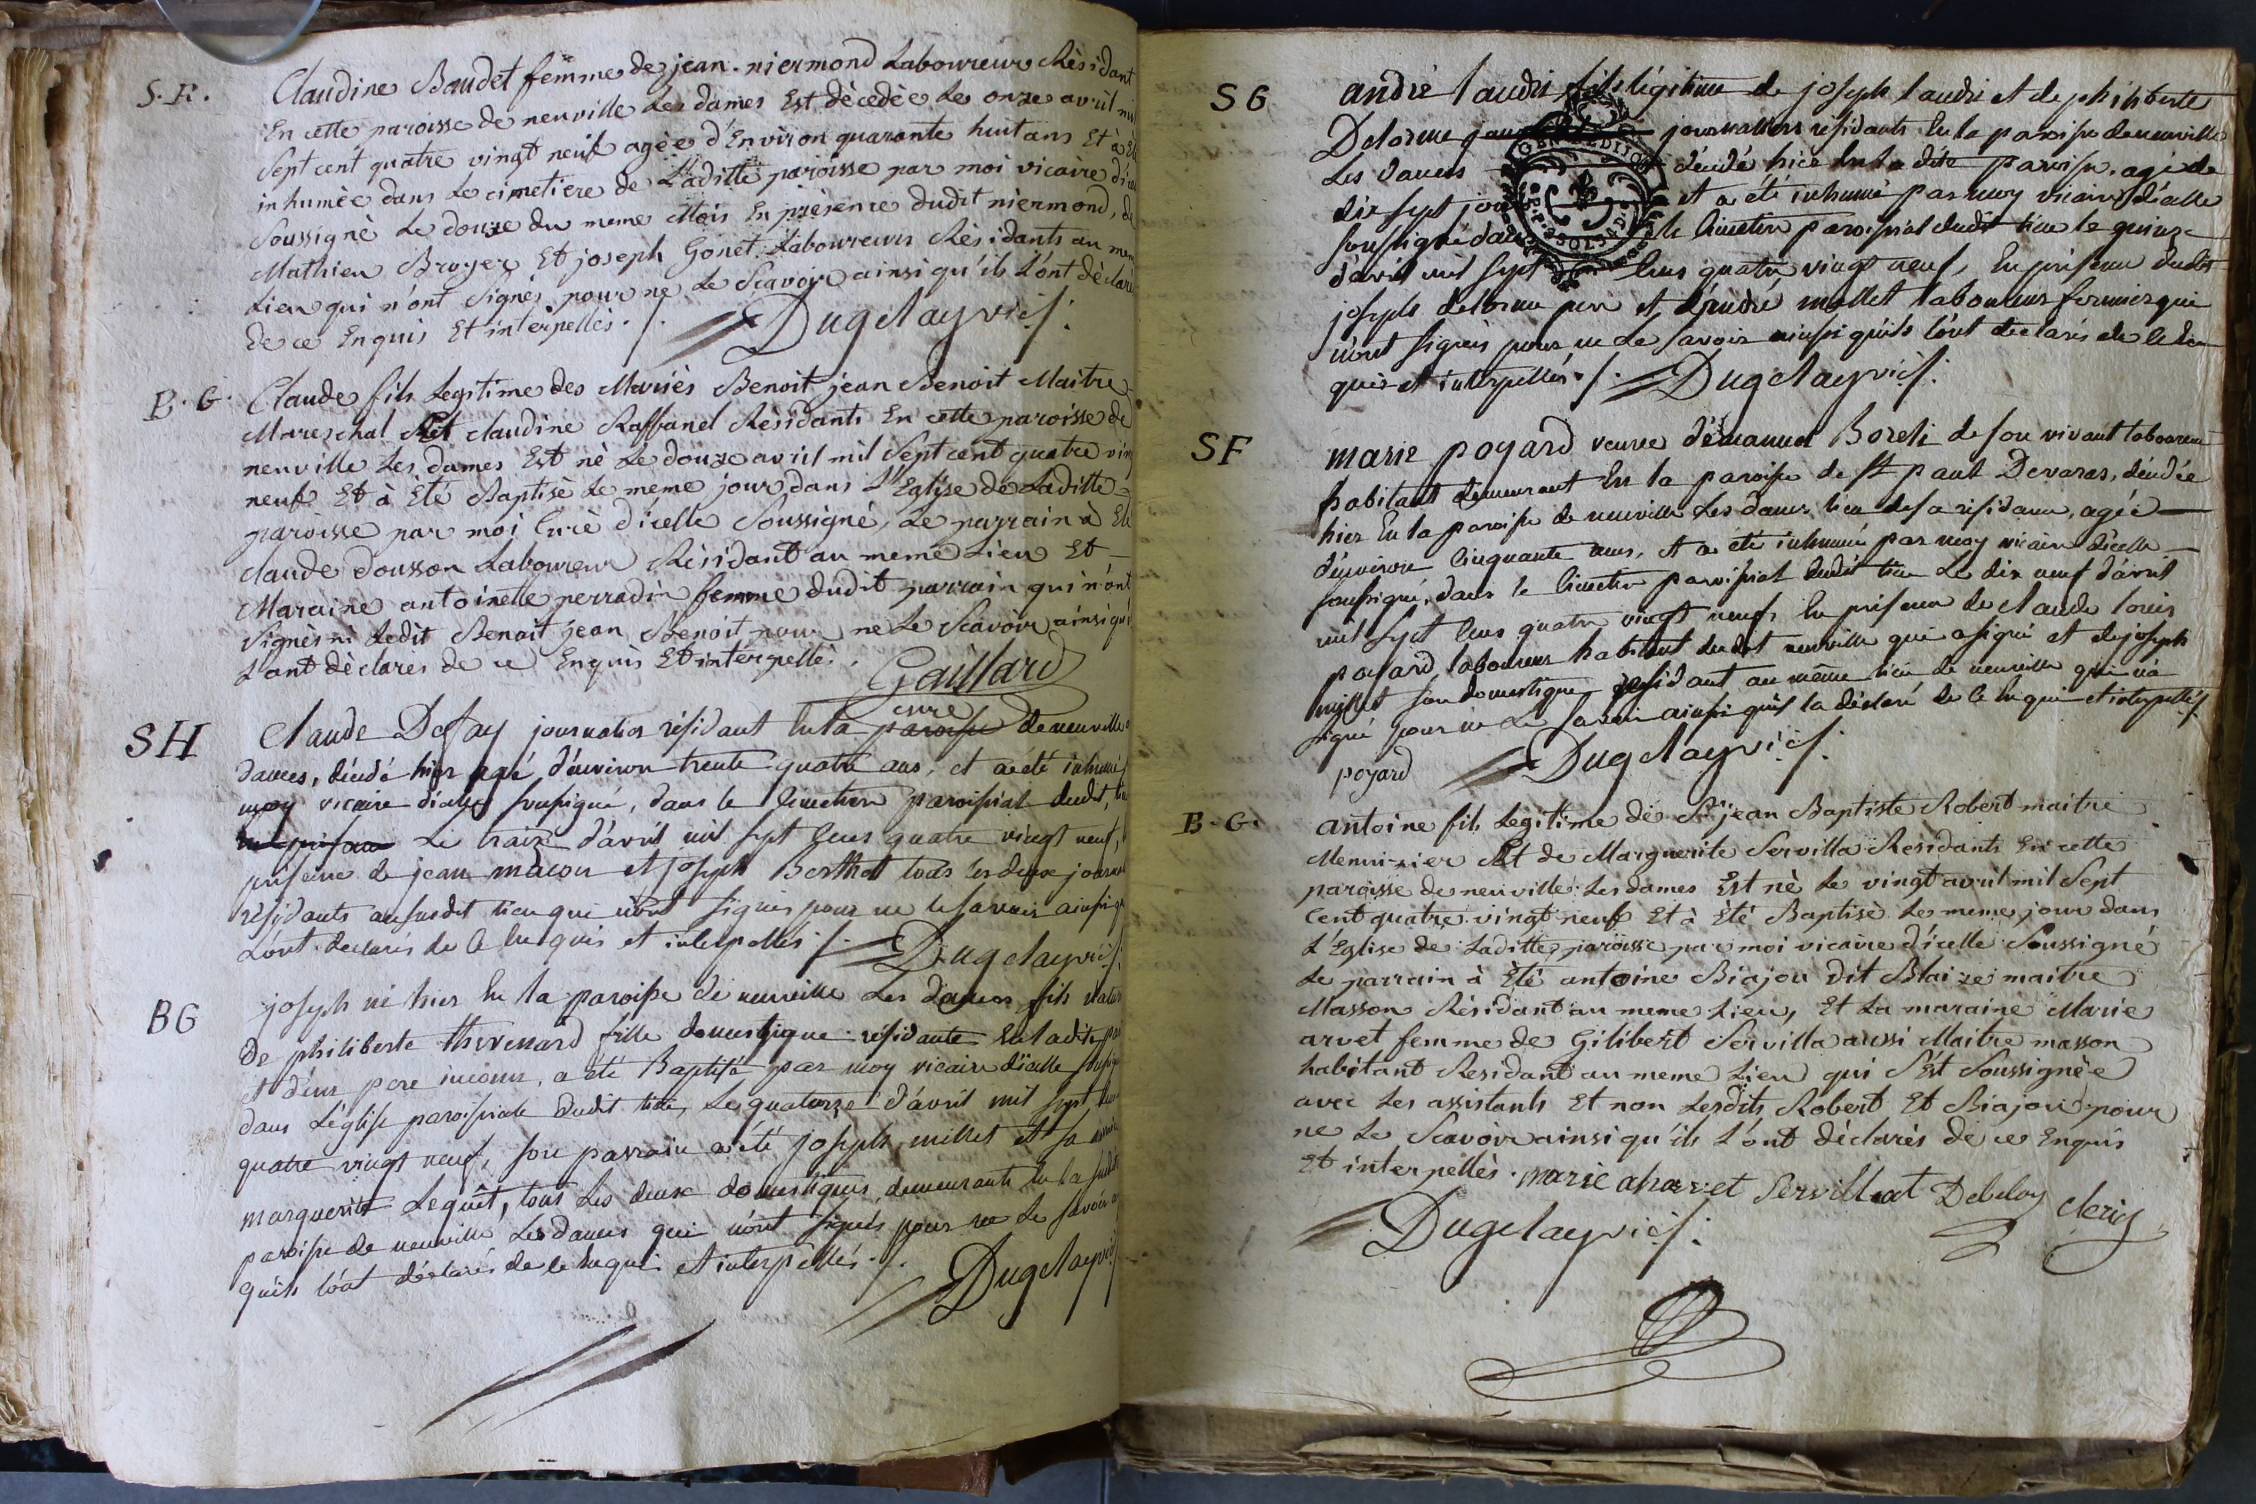 S.F.
Claudine Baudet femme de jean niermond Laboureur Résidant
En cette paroisse de neuville Les dames Est décedée Le onze avril mil
Sept cent quatre vingt neuf agée d'Environ quarante huit ans Et à Eté
inhumée dans Le cimetiere de Laditte paroisse par moi vicaire d'icelle
Soussigné Le douze du meme Mois En présence dudit niermond, de
Mathieu Broyer Et joseph Gonet Laboureurs Résidants au meme
Lieu qui n'ont Signés pour ne Le Scavoir ainsi qu'ils L'ont déclaré
de ce Enquis Et interpellés ./.
Dugelay vic/.
B.G.
Claude fils Legitime des Mariés Benoit jean Benoit Maitre
Mareschal Et claudine Raffanel Résidants En cette paroisse de
neuville Les dames Est né Le douze avril mil Sept cent quatre vingt
neuf Et à Eté Baptisé Le meme jour dans L'Eglise de Laditte
paroisse par moi Curé d'icelle Soussigné, Le parrain à Eté
claude dousson Laboureur Résidant au meme Lieu Et
Maraine antoinette perradin femme dudit parrain qui n'ont
Signés ni Ledit Benoit jean Benoit pour ne Le Scavoir ainsi qu'ils
L'ont déclares de ce Enquis Et interpellés.
Gaillard
curé
SH
Claude Defay journalier résidant En la paroisse de neuville
dames, décédé hier agé d'environ trente quatre ans, et a été inhumé
moy vicaire d'icelle soussigné, dans le cimetiere paroissial dudit, lieu
Le traize d'avril mil sept cens quatre vingt neuf,
présence de jean macon et joseph Berthet tous les deux journaliers
résidants au susdit lieu qui n'ont signés pour ne le savoir ainsi qu
L'ont declarés de Ce Enquis et interpellés ./.
Dugelay vic/.
BG
joseph né hier En la paroisse de neuville Les dames fils naturel
De philiberte thevenard fille domestique résidante En ladite par
et d'un pere inconnu, a été Baptisé par moy vicaire d'icelle soussigné
dans L'église paroissiale dudit lieu, Le quatorze d'avril mil sept cens
quatre vingt neuf, son parrain a été joseph millet et sa
marguerite Lequêt, tous Les deux domestiques, demeurants En la susdite
paroisse de neuville Les dames qui n'ont signés pour ne Le savoir
qu'ils l'ont déclarés de ce Enquis et interpéllés ./.
Dugelay vic/.
SG
andré laudri fils légitime de joseph laudri et de philiberte
Delorme journaliers résidants En la paroisse de neuville
Les dames décédé hier En la dite paroisse, agé de
dix sept jours et a été inhumé par moy vicaire d'icelle
soussigné dans le Cimetiere paroissial dudit lieu le quinze
d'avril mil sept Cens quatre vingt neuf, En présence dudit
joseph delorme pere et d'andré mollet laboureur fermier qui
n'ont signés pour ne Le savoir ainsi qu'ils l'ont declarés de Ce En
quis et interpellés ./.
Dugelay vic/.
SF
marie poyard veuve d'émanuel Boreli de son vivant laboureur
habitant demeurant En la paroisse de St paul Devaras, décédée
hier En la paroisse de neuville Les dames lieu de sa résidance, agée
d'environ Cinquante ans, et a été inhumée par moy vicaire d'icelle
soussigné, dans le Cimetiere paroissial dudit lieu Le dix neuf d'avril
mil sept Cens quatre vingt neuf, En présence de claude louis
poyard laboureur habitant dudit neuville qui a signé et de joseph
millet son domestique résidant au même lieu de neuville qui n'a
signé pour ne Le savoir ainsi qu'il la déclaré de Ce Enquis et interpellés/.
poyard
Dugelay vic/.
B.G.
antoine fils Legitime de Sr jean Baptiste Robert maitre
Menuizier Et de Marguerite Servilla Residants En cette
paroisse de neuville Les dames Est né Le vingt avril mil Sept
Cent quatre vingt neuf Et à Eté Baptisé Le meme jour dans
L'Eglise de Laditte paroisse par moi vicaire d'icelle Soussigné
Le parrain à Eté antoine Biajou dit Blaize maitre
Masson Résidant au meme Lieu, Et La maraine Marie
arvet femme de Gilibert Servilla aussi Maitre masson
habitant Residant au meme Lieu qui S'est Soussignée
avec Les assistants Et non Lesdits Robert Et Biajou pour
ne Le Scavoir ainsi qu'ils L'ont déclarés de ce Enquis
Et interpellés. marie aharvet Servilleat Debeloy cleric
Dugelay vic/.